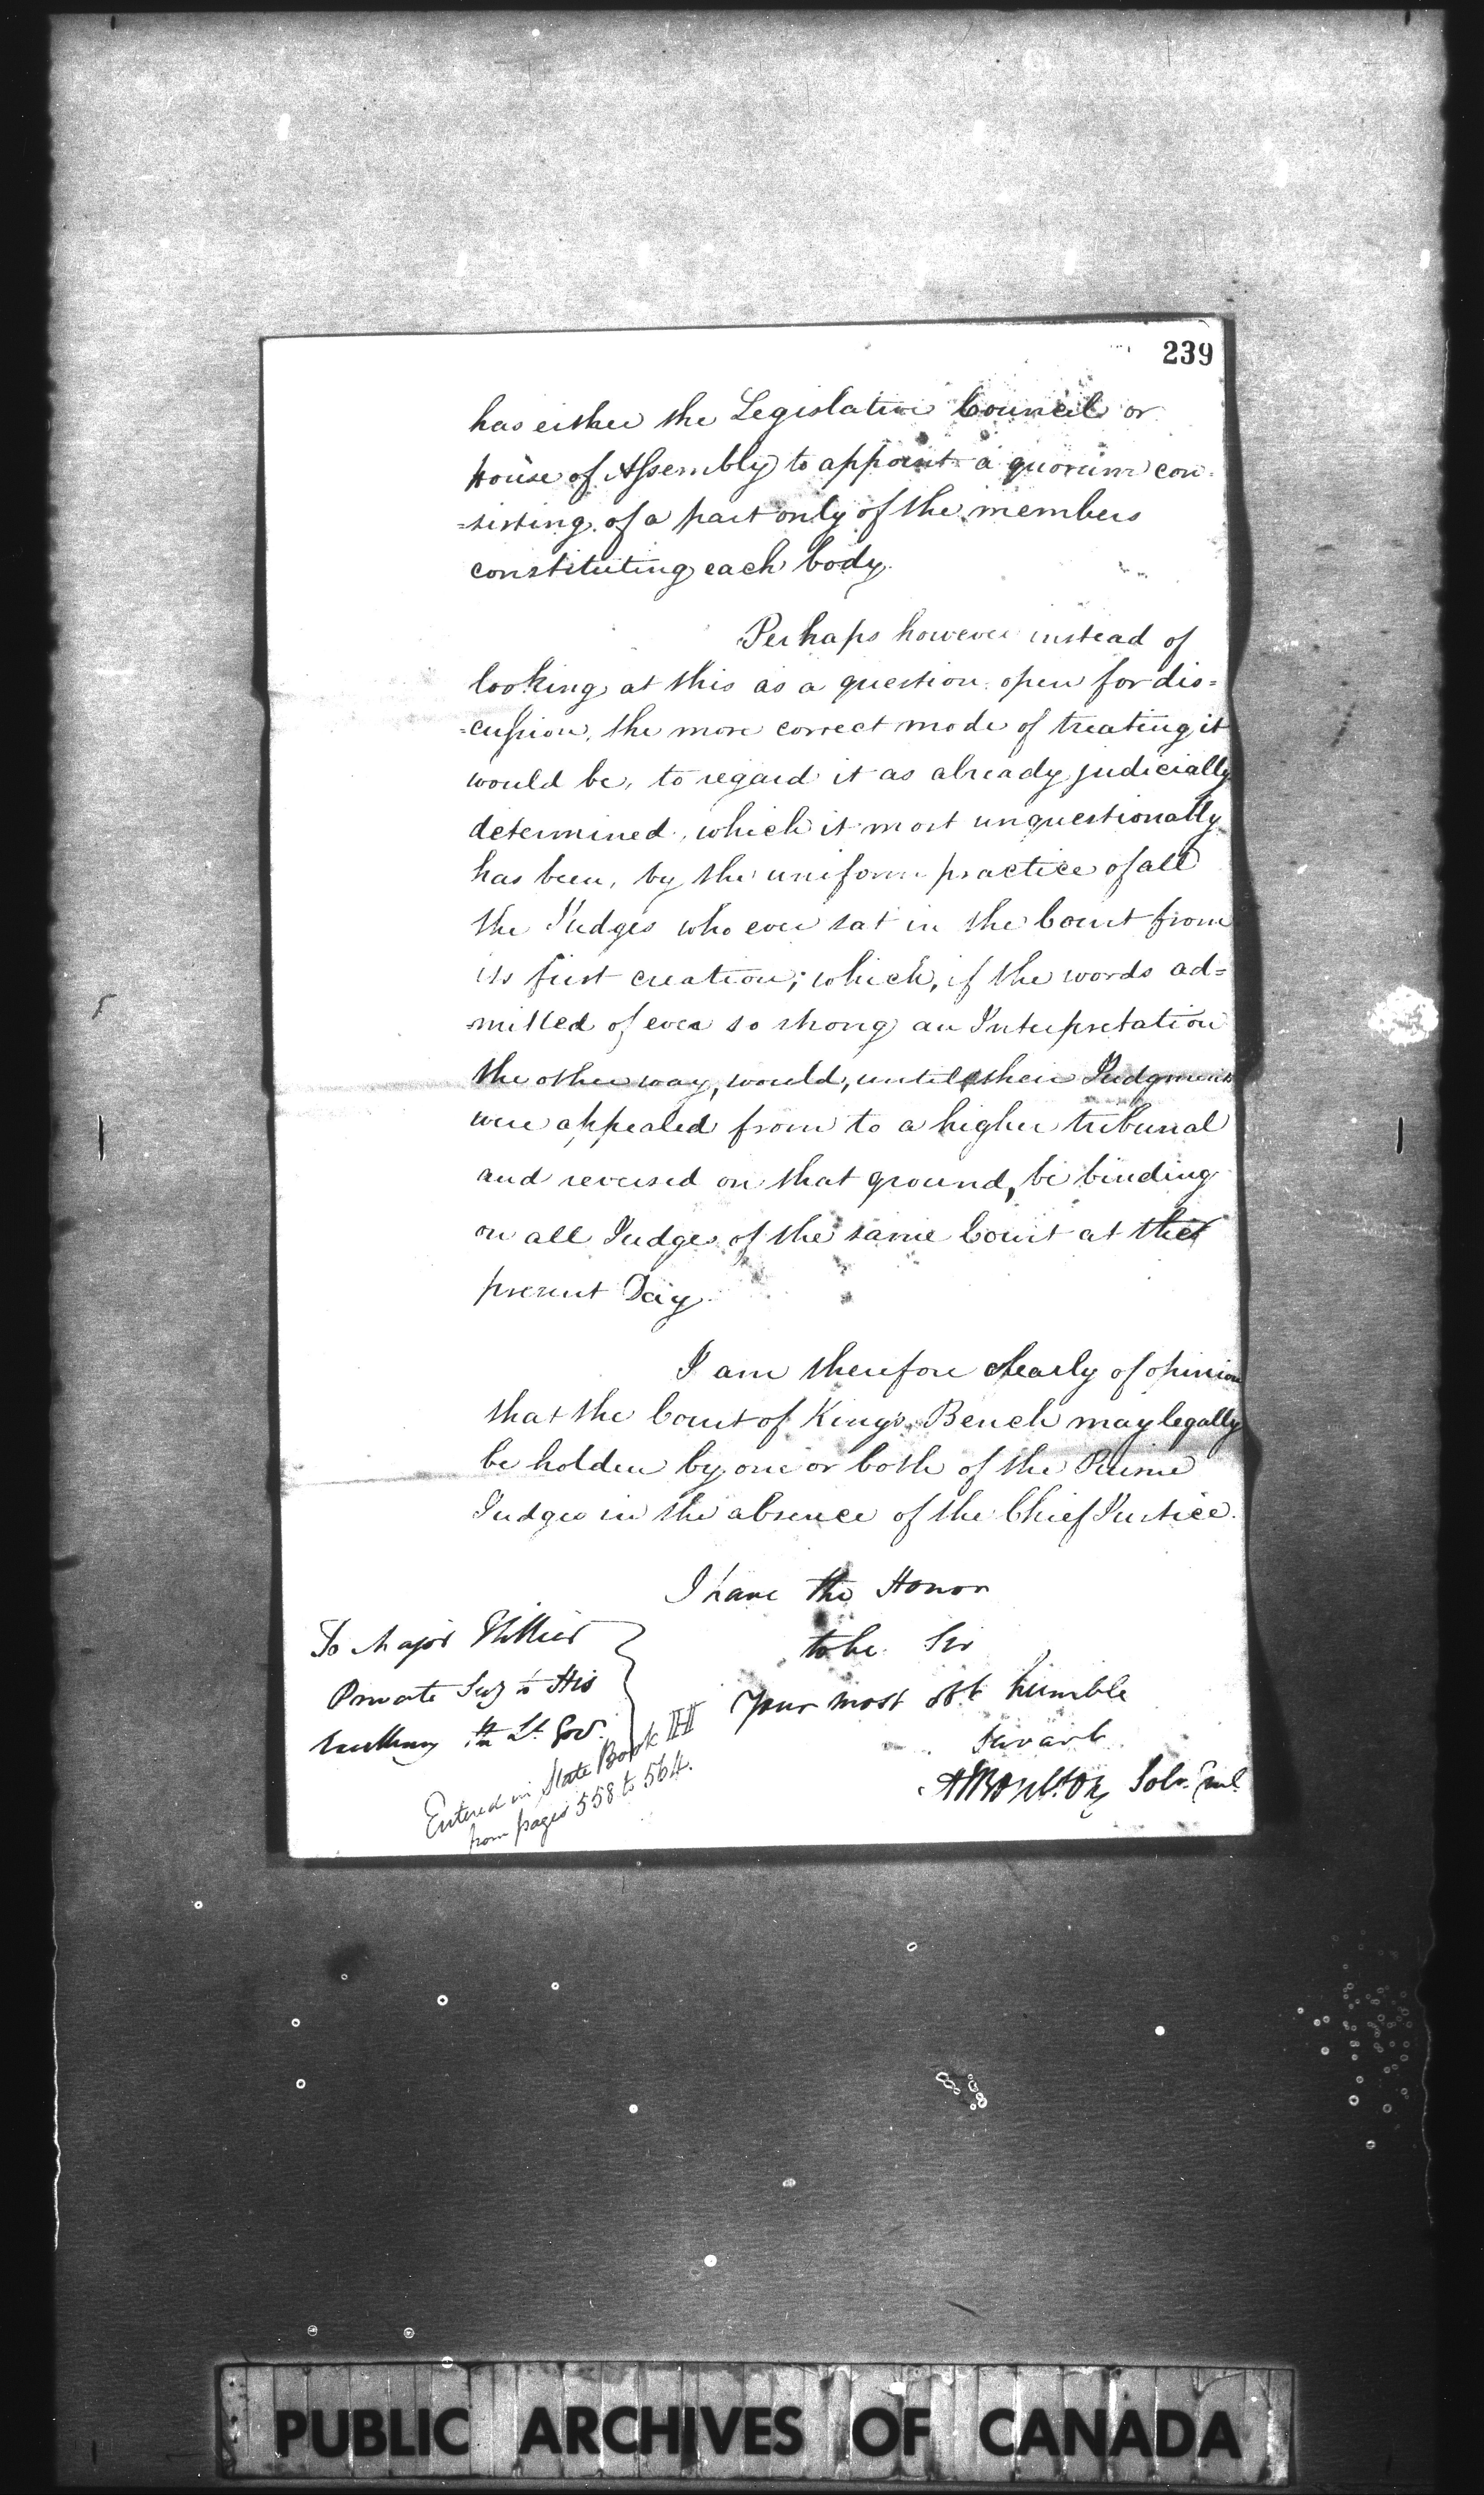 239
has either the Legislative Council or
House of Assembly to appoint a quorum con-
=sisting of a part only of the members
constituting each body.
Perhaps however instead of
looking at this as a question open for dis=
=cussion, the more correct mode of treating it
would be, to regard it as already judicially
determined, which it most unquestionably
has been, by the uniform practice of all
the Judges who ever sat in the Court from
its first creation; which, if the words ad=
-mitted of ever so strong an Interpretation
the other way, would, until their Judgments
were appealed from to a higher tribunal
and reversed on that ground, be binding
on all Judges of the same Court at the
present Day.
I am therefore clearly of opinion
that the Court of King's Bench may legally
be holden by one or both of the Puisne
Judges in the absence of the Chief Justice.
I have the Honor
to be Sir
Your most obt humble
Servant
HJBoulton Solr. Genl.
To Major Hillier
Private Secy to His
Excellency the Lt Govr.
Entered in State Book
from pages 558 to 564.
PUBLIC ARCHIVES OF CANADA